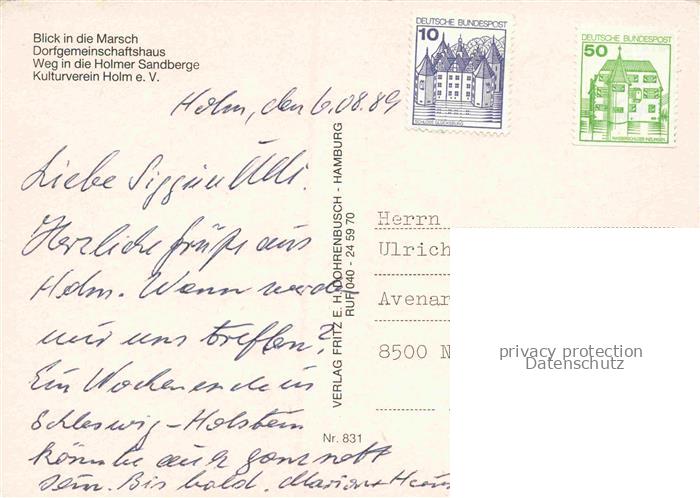 Blick in die Marsch
Dorfgemeinschaftshaus
Weg in die Holmer Sandberge
Kulturverein Holm e. V.
DEUTSCHE BUNDESPOST
10
SCHLOSS GLÜCKSBURG
DEUTSCHE BUNDESPOST
50
WASSERSCHLOSS INZLINGEN
Holm, den 6.08.89
Liebe Ulli.
Herzliche Grüße aus
Holm. Wann werden
wir uns treffen?
Ein Wochenende in
Schleswig-Holstein
könnte auch ganz nett
sein. Bis bald.
VERLAG FRITZ E. H. DOHRENBUSCH - HAMBURG
RUF 040 - 24 59 70
Nr. 831
Herrn
Ulrich
Avenar
8500 N
privacy protection
Datenschutz